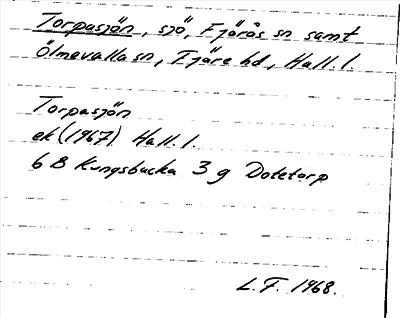 Torpasjön, sjö, Fjärås sn samt
Ölmevalla sn, Fjäre hd, Hall. l.
Torpasjön
ek (1967) Hall. l.
6 B Kungsbacka 3 g Dotetorp
L.F. 1968.